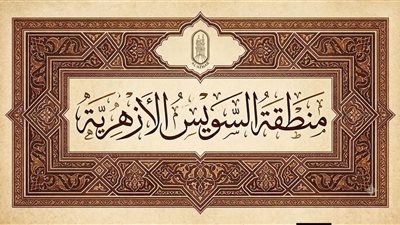 منطقة السويس الأزهرية